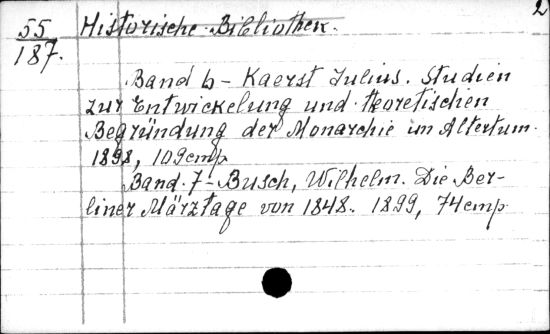 2
55 Historische Bibliothek.
187.
Band 6 - Kaerst Julius. Studien
zur Entwickelung und theoretischen
Begründung der Monarchie im Altertum.
1898, 109 стр
Band. 7 - Busch, Wilhelm. Die Ber-
liner Märztage von 1848. 1899, 74 стр